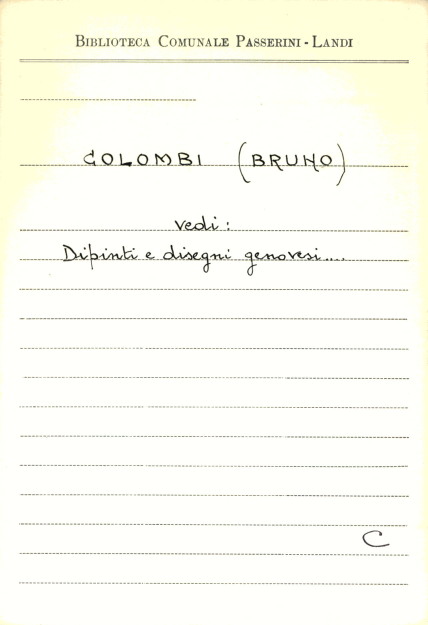 BIBLIOTECA COMUNALE PASSERINI - LANDI
COLOMBI (BRUNO)
vedi:
Dipinti e disegni genovesi....
C